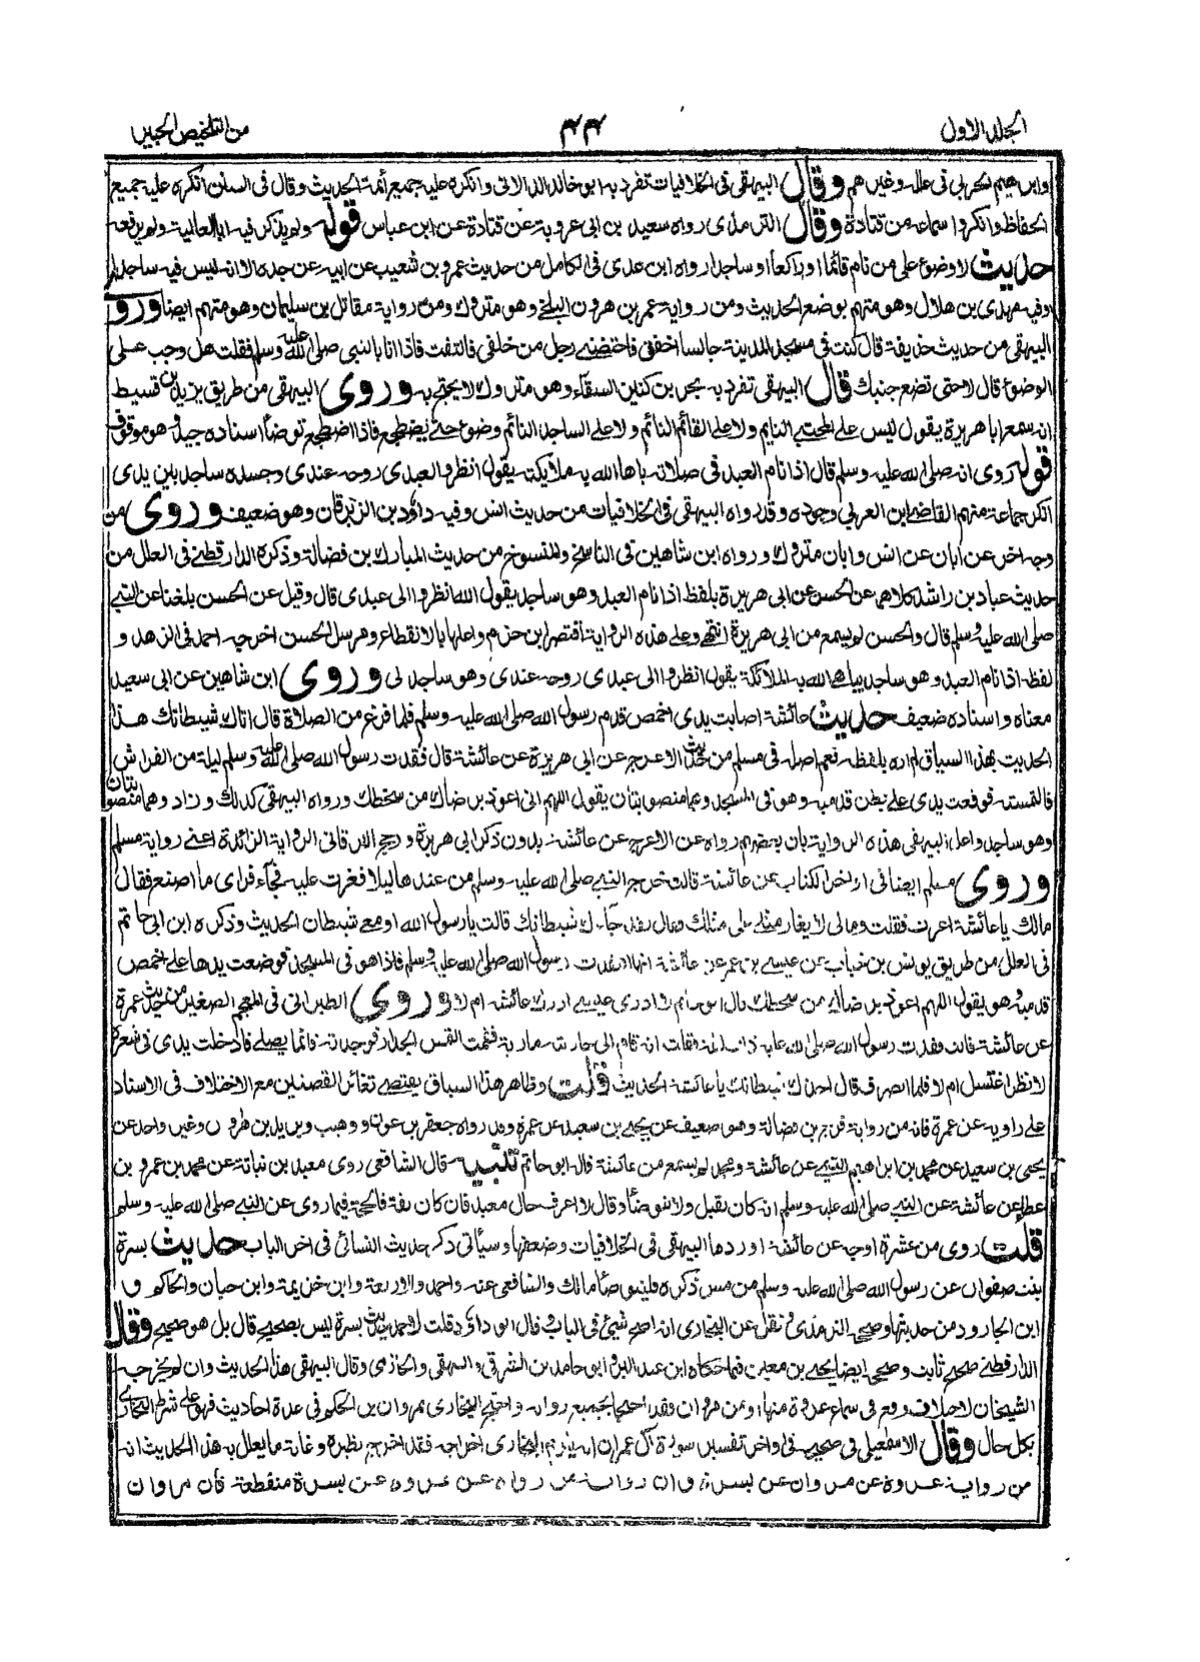 الجلد الاول ٤٤ من التلخيص الحبير
وابراهيم الحربى فى علله وغيرهم وقال البيهقى فى الخلافيات تفرد به ابو خالد الدالانى وانكره عليه جميع ائمة الحديث وقال فى السنن انكره عليه جميع
الحفاظ وانكروا سماعه من قتادة وقال الترمذى رواه سعيد بن ابى عروبة عن قتادة عن ابن عباس قوله ولم يذكر فيه ابا العالية ولم يرفعه
حديث لا وضوء على من نام قائما او راكعا او ساجدا رواه ابن عدى فى الكامل من حديث عمرو بن شعيب عن ابيه عن جده الا انه ليس فيه ساجدا
وفيه مهدى بن هلال وهو متهم بوضع الحديث ومن رواية عمر بن هرون البلخى وهو متروك ومن رواية مقاتل بن سليمان وهو متهم ايضا وروى
البيهقى من حديث حذيفة قال كنت فى مسجد المدينة جالسا اخفق فاحتضننى رجل من خلفى فالتفت فاذا انا بالنبى صلى الله عليه وسلم فقلت هل وجب على
الوضوء قال لا حتى تضع جنبك قال البيهقى تفرد به بحر بن كنيز السقاء وهو متروك لا يحتج به وروى البيهقى من طريق يزيد بن قسيط
انه سمع ابا هريرة يقول ليس على المحتبى النايم ولا على القائم النائم ولا على الساجد النائم وضوء حتى يضطجع فاذا اضطجع توضأ اسناده جيد وهو موقوف
قوله روى انه صلى الله عليه وسلم قال اذا نام العبد فى صلاته باها الله به ملايكته يقول انظروا لعبدى روحه عندى وجسده ساجد بين يدى
انكر جماعة منهم القاضى ابن العربى وجوده وقد رواه البيهقى فى الخلافيات من حديث انس وفيه داؤد بن الزبرقان وهو ضعيف وروى من
وجه اخر عن ابان عن انس وابان متروك ورواه ابن شاهين فى الناسخ والمنسوخ من حديث المبارك بن فضالة وذكره الدارقطنى فى العلل من
حديث عباد بن راشد كلاهما عن الحسن عن ابى هريرة بلفظ اذا نام العبد وهو ساجد يقول الله انظروا الى عبدى قال وقيل عن الحسن بلغنا عن النبى
صلى الله عليه وسلم قال والحسن لم يسمع من ابى هريرة انتهى وعلى هذه الرواية اقتصر ابن حزم واعلها بالانقطاع ومرسل الحسن اخرجه احمد فى الزهد و
لفظه اذا نام العبد وهو ساجد يباهى الله به الملائكة يقول انظروا الى عبدى روحه عندى وهو ساجد لى وروى ابن شاهين عن ابى سعيد
معناه واسناده ضعيف حديث عائشة اصابت يدى اخمص قدم رسول الله صلى الله عليه وسلم فلما فرغ من الصلاة قال اتاك شيطانك هذا
الحديث بهذا السياق لم اره بلفظه نعم اصله فى مسلم من حديث الاعرج عن ابى هريرة عن عائشة قال فقدت رسول الله صلى الله عليه وسلم ليلة من الفراش
فالتمسته فوقعت يدى على بطن قدميه وهو فى المسجد وهما منصوبتان يقول اللهم انى اعوذ برضاك من سخطك ورواه البيهقى كذلك وزاد وهما منصوبتان
وهو ساجد واعل البيهقى هذه الرواية بان بعضهم رواه عن الاعرج عن عائشة بدون ذكر ابى هريرة ورجح البرقانى الرواية الزائدة اعنى رواية مسلم
وروى مسلم ايضا فى اواخر الكتاب عن عائشة قالت خرج النبى صلى الله عليه وسلم من عندها ليلا فغرت عليه فجاء فراى ما اصنع فقال
مالك يا عائشة اغرت فقلت ومالى لا يغار مثلى على مثلك فقال لقد جاءك شيطانك قالت يا رسول الله او معى شيطان الحديث وذكره ابن ابى حاتم
فى العلل من طريق يونس بن خباب عن عيسى بن عمر عن عائشة انها فقدت رسول الله صلى الله عليه وسلم فاذا هو فى المسجد فوضعت يدها على اخمص
قدميه وهو يقول اللهم اعوذ برضاك من سخطك قال ابو حاتم لا ادرى عيسى ادرك عائشة ام لا وروى الطبرانى فى المعجم الصغير من حديث عمرة
عن عائشة قالت فقدت رسول الله صلى الله عليه ذات ليلة فقلت انه قام الى جاريته مارية فقمت التمس الجدار فوجدته قائما يصلى فادخلت يدى فى شعره
لانظر اغتسل ام لا فلما انصرف قال اخذك شيطانك يا عائشة الحديث قلت وظاهر هذا السياق يقتضى تغائر القصتين مع الاختلاف فى الاسناد
على راويه عن عمرة فانه من رواية فرج بن فضالة وهو ضعيف عن يحيى بن سعيد عن عمرة وقد رواه جعفر بن عون ووهيب ويزيد بن هرون وغير واحد عن
يحيى بن سعيد عن محمد بن ابراهيم التيمى عن عائشة ومحمد لم يسمع من عائشة قاله ابو حاتم تنبيه قال الشافعى روى معبد بن نباتة عن محمد بن عمرو بن
عطاء عن عائشة عن النبى صلى الله عليه وسلم انه كان يقبل ولا يتوضأ وقال لا اعرف حال معبد فان كان ثقة فالحجة فيما روى عن النبى صلى الله عليه وسلم
قلت روى من عشرة اوجه عن عائشة اوردها البيهقى فى الخلافيات وضعفها وسيأتى ذكر حديث النسائى فى اخر الباب حديث بسرة
بنت صفوان عن رسول الله صلى الله عليه وسلم من مس ذكره فليتوضأ مالك والشافعى عنه واحمد والاربعة وابن خزيمة وابن حبان والحاكم و
ابن الجارود من حديثها وصححه الترمذى ونقل عن البخارى انه اصح شيئ فى الباب وقال ابو داؤد قلت لاحمد حديث بسرة ليس بصحيح قال بل هو صحيح وقال
الدارقطنى صحيح ثابت وصححه ايضا يحيى بن معين فيما حكاه ابن عبد البر وابو حامد بن الشرقى والبيهقى والحازمى وقال البيهقى هذا الحديث وان لم يخرجه
الشيخان لاختلاف وقع فى سماع عروة منها او من مروان فقد احتجا بجميع رواته واحتج البخارى بمروان بن الحكم فى عدة احاديث فهو على شرط البخارى
بكل حال وقال الاسمعيلى فى صحيحه فى اواخر تفسير سورة آل عمران انه يلزم البخارى اخراجه فقد اخرج نظيره وغاية ما يعلل به هذا الحديث انه
من رواية عروة عن مروان عن بسرة وان رواية من رواه عن عروة عن بسرة منقطعة فان مروان